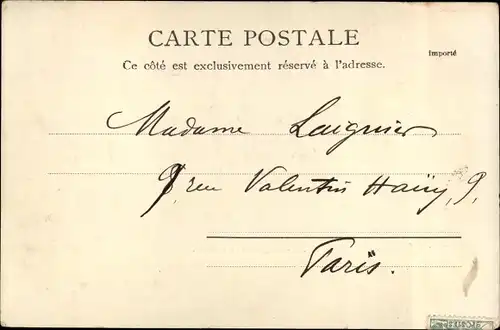 CARTE POSTALE
Importé
Ce côté est exclusivement réservé à l'adresse.
Madame Laignier
9, rue Valentin Haüy, 9,
Paris.